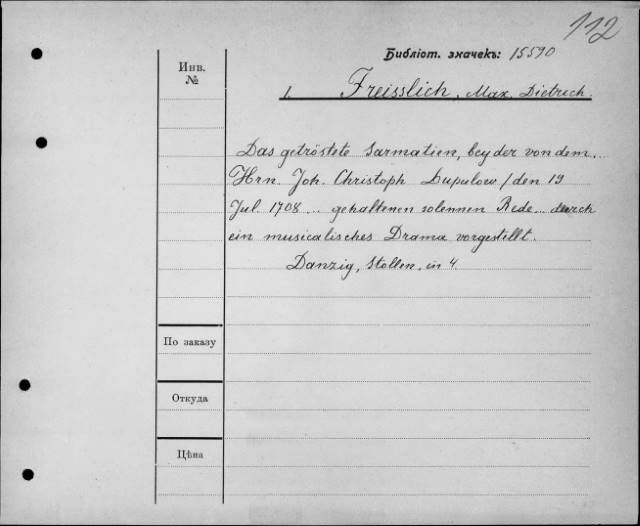 112
Библіот. значекъ: 15590
Инв.
№
1. Freisslich, Max. Dietrich.
Das getröstete Sarmatien, bey der von dem...
Hrn. Joh. Christoph Dupulow / den 19
Jul. 1708... gehaltenen solennen Rede... durch
ein musicalisches Drama vorgestellt.
Danzig, Stollen, in 4.
По заказу
Откуда
Цѣна